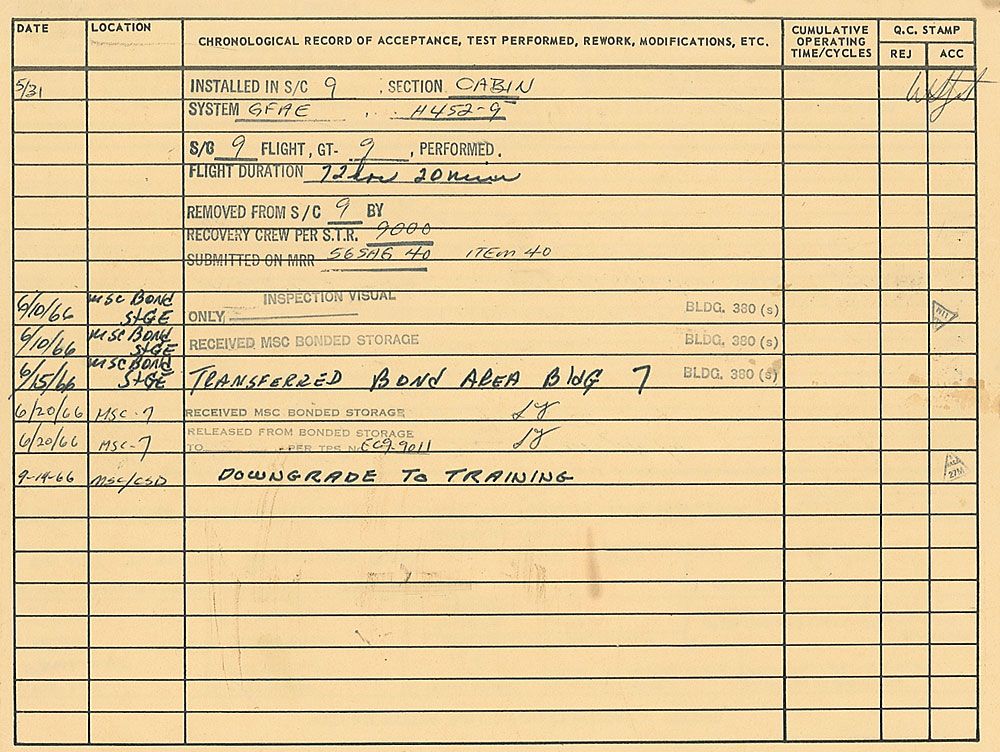 DATE LOCATION CHRONOLOGICAL RECORD OF ACCEPTANCE, TEST PERFORMED, REWORK, MODIFICATIONS, ETC. CUMULATIVE OPERATING TIME/CYCLES Q.C. STAMP
REJ ACC
5/31 INSTALLED IN S/C 9 . SECTION CABIN
SYSTEM GFAE H452-9
S/C 9 FLIGHT, GT- 9 , PERFORMED.
FLIGHT DURATION 72 hrs 20 min
REMOVED FROM S/C 9 BY
RECOVERY CREW PER S.T.R. 9000
SUBMITTED ON MRR 565AG 40 ITEM 40
INSPECTION VISUAL
6/10/66 MSC BOND STGE ONLY BLDG. 380 (s)
6/10/66 MSC BOND STGE RECEIVED MSC BONDED STORAGE BLDG. 380 (s)
6/15/66 MSC BOND STGE TRANSFERRED BOND AREA BLDG 7 BLDG. 380 (s)
6/20/66 MSC-7 RECEIVED MSC BONDED STORAGE
RELEASED FROM BONDED STORAGE
6/20/66 MSC-7 TO PER TPS No. EC9-9011
9-14-66 MSC/CSD DOWNGRADE TO TRAINING
27M